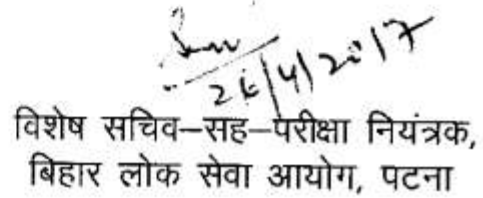 26/4/2017
विशेष सचिव–सह–परीक्षा नियंत्रक,
बिहार लोक सेवा आयोग, पटना